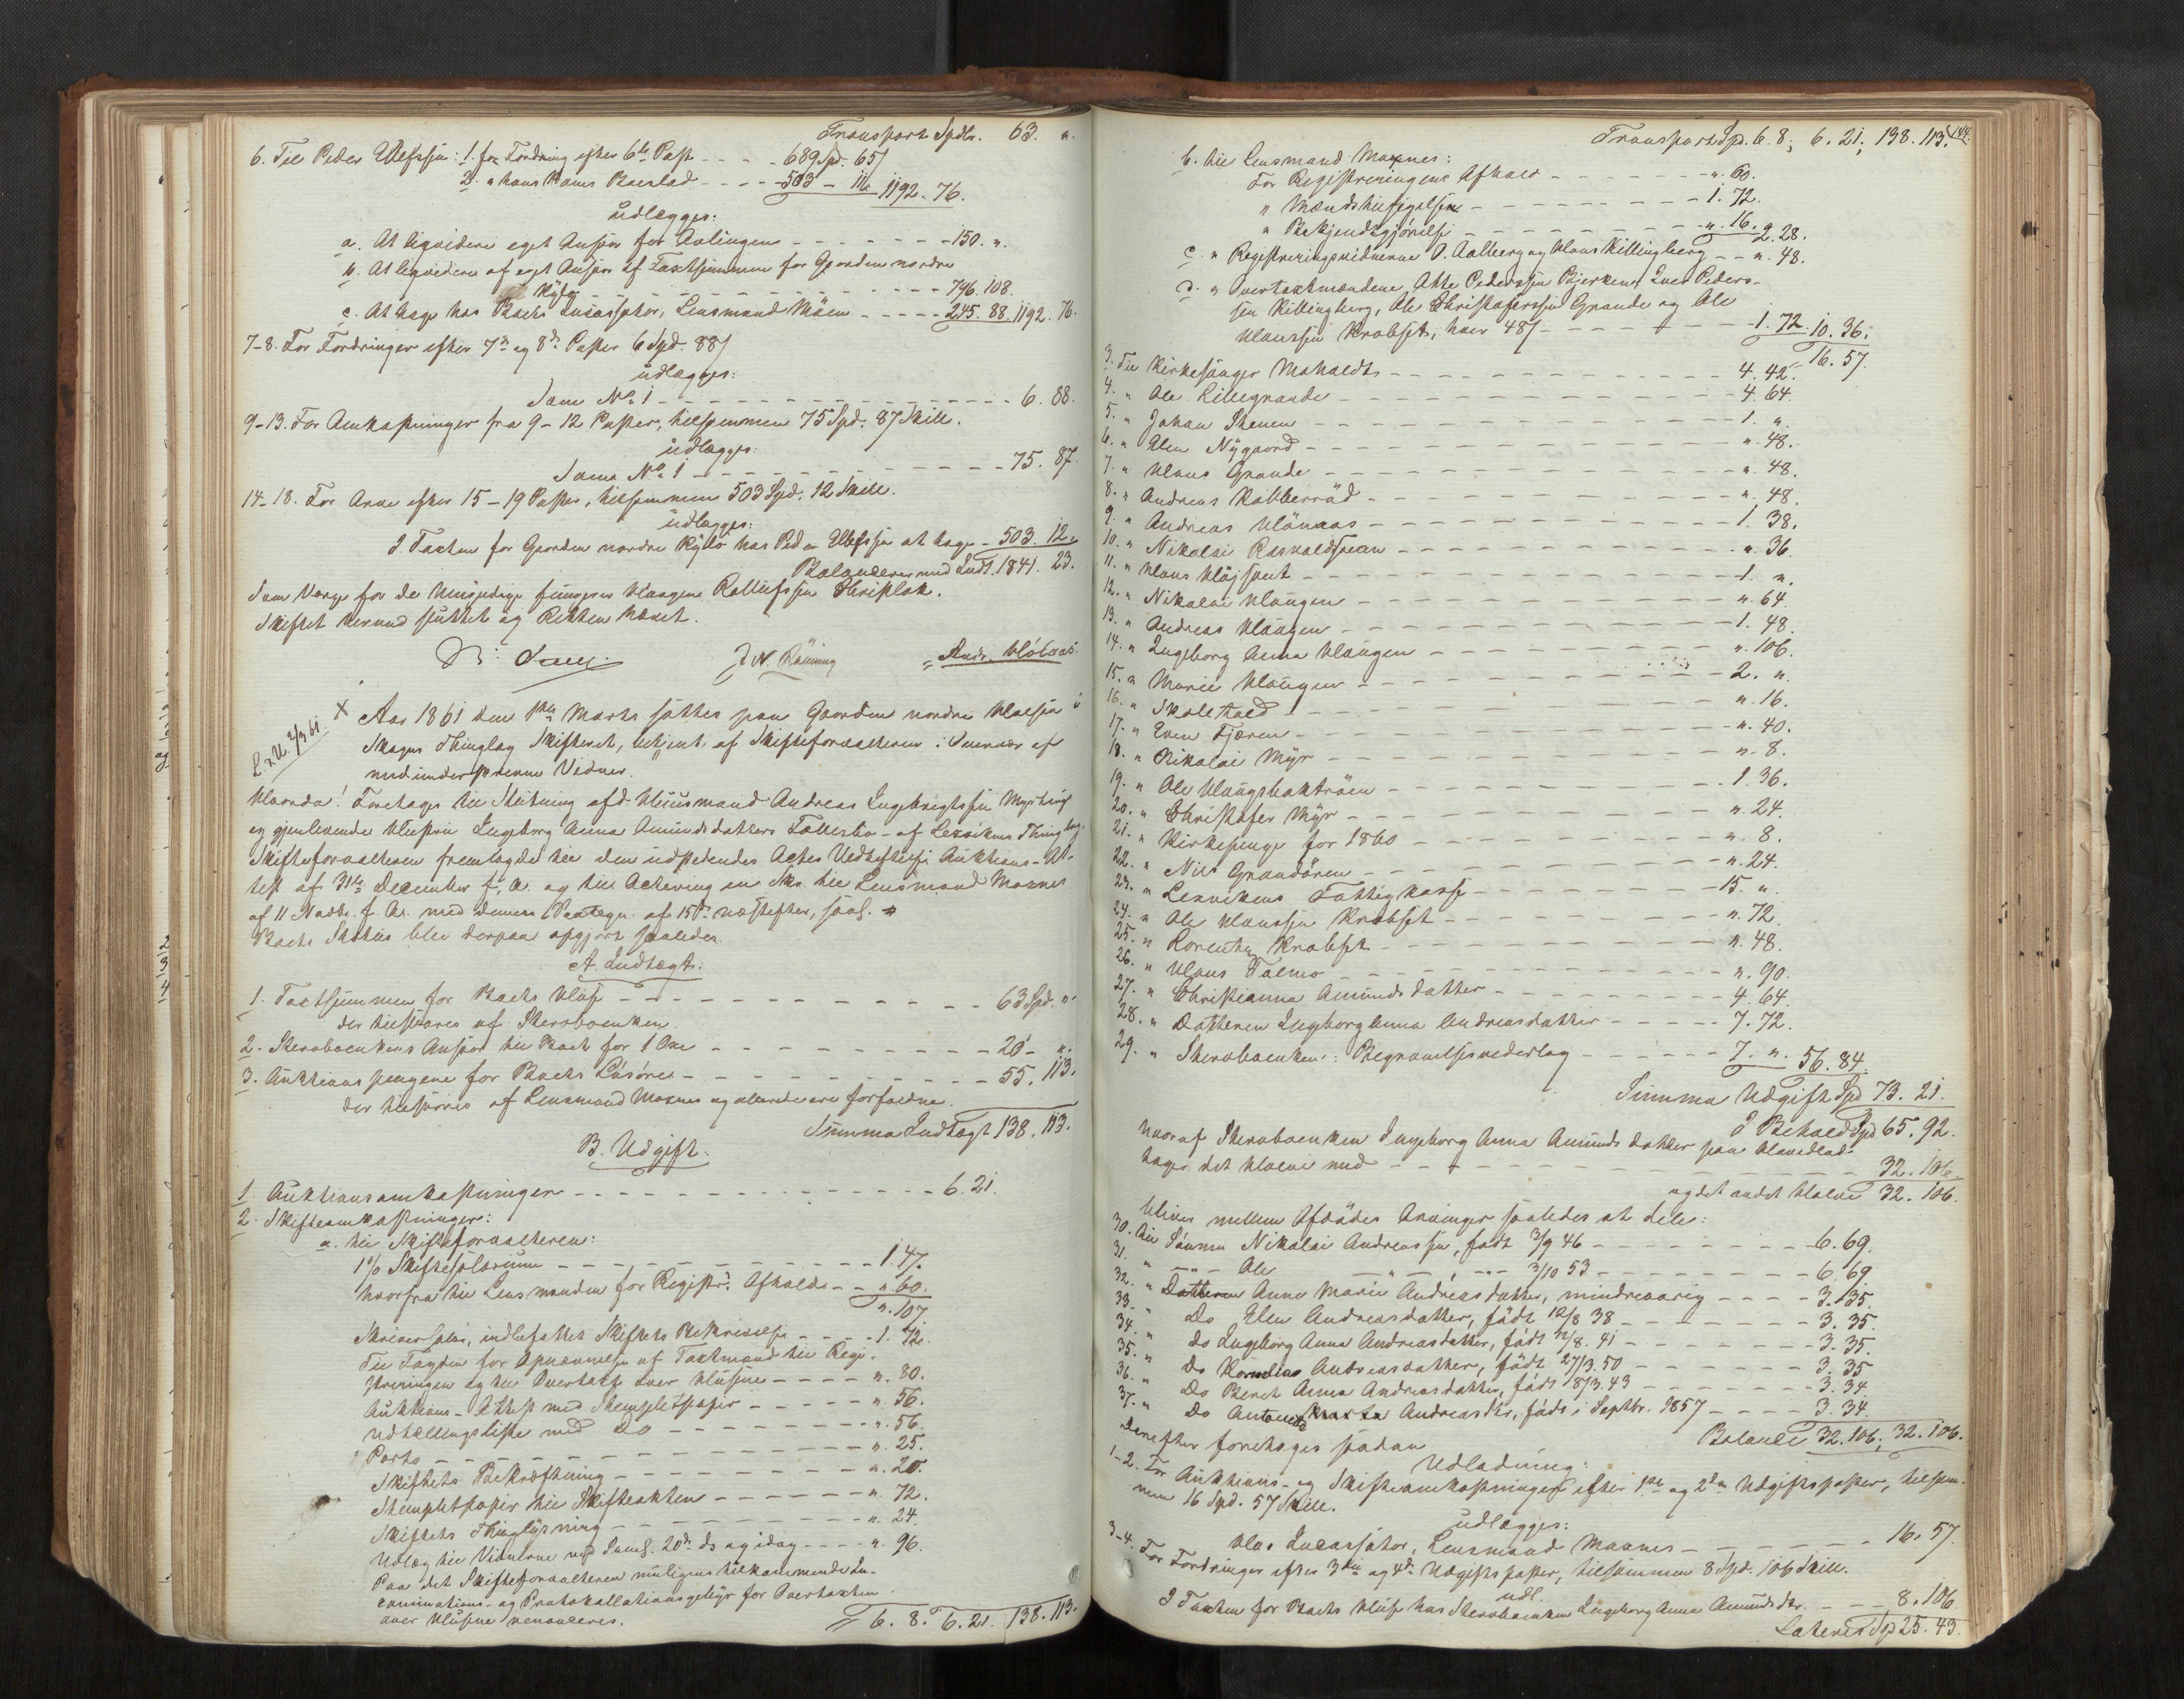 Transport Spdlr. 63. "
6. Til Peder Ellefssen: 1. for Fordring efter 6te Post - - - 689 Spd. 65ʃ
2. " hans Kones Boeslod - - - - 503 - 11 1192. 76.
udlægges:
a. At liqvidere eget Ansvar for Avlingen - - - - - - - 150. "
b. At liqvidere af eget Ansvar af Taxtsummen for Gaarden nordre
Kylo - - - - - - - - - - - - 796. 108.
c. At tage hos Boets Incassator, Lensmand Moen - - - - - 245. 88. 1192. 76.
7-8. For Fordringer efter 7de og 8de Poster 6 Spd. 88ʃ
udlægges:
Som No 1 - - - - - - - - - - - - - - 6. 88.
9-13. For Omkostninger fra 9-12 Poster, tilsammen 75 Spd. 87 Skill.
udlægges:
Som No 1 - - - - - - - - - - - - - - 75. 87.
14-18. For Arve efter 15-19 Poster, tilsammen 503 Spd. 12 Skill.
udlægges:
I Taxten for Gaarden nordre Kylo hos Peder Ellefssen at tage - 503. 12.
Balancerer med Indt. 1841. 23.
Som Værge for de Umyndige fungerer Haagen Rollufssen
Skiftet hermed sluttet og Retten hævet.
J. N. Rönning
Andr. Klökaas
L. & U. 2/3 61. X Aar 1861 den 1ste Marts sattes paa Gaarden nordre i
Skogns Thinglag Skifteret, betjent af Skifteforvalteren i Overvær af
medunderskrevne Vidner.
Hvorda! Foretoges til Slutning afd. Huusmand Andreas Ingebrigtssen
og gjenlevende Hustru Ingeborg Anna Amundsdatters Fællesbo - af Lexvikens Thinglag.
Skifteforvalteren fremlagde til den udstedendes Actes Vedheftelse Auktions-At-
test af 31te December f. A. og til Actering en Skr. til Lensmand Moxnes
af 11 Novbr. f. Ar. med dennes Paategn. af 15de næstefter, saal.
Boets Status blev derpaa opgjort saaledes
A. Indtægt.
1. Taxtsummen for Boets Huse - - - - - - - - - - - 63 Spd. "
der tilsvares af Stervboenken.
2. Stervboenkens Ansvar til Boet for 1 Oxe - - - - - - - 20 - "
3. Auktionspengene for Boets Lösöre - - - - - - - - - - 55. 113.
der tilsvares af Lensmand Moxnes og allerede ere forfaldne.
Summa Indtægt 138. 113.
B. Udgift.
1. Auktionsomkostninger - - - - - - - - - - - - - 6. 21.
2. Skifteomkostninger:
a. til Skifteforvalteren:
1 % Skiftesalarium - - - - - - - - - - - - 1. 47.
hvorfra til Lensmanden for Registr. Afholde - - " 60.
". 107.
Skriversalar, indbefattet Skiftets Beskrivelse - - - 1. 72.
Til Fogden for Opnævnelse af Taxtmænd til Regi-
streringen og til Overtaxt over Husene - - - - ". 80.
Auktions-Attest med Stempletpapir - - - - - ". 56.
Udtællingsliste med Do - - - - - - - - ". 56.
Porto - - - - - - - - - - - - - - ". 25.
Skiftets Bekræftning - - - - - - - - - ". 20.
Stempletpapir til Skifteakten - - - - - - ". 72.
Skiftets Thinglysning - - - - - - - - - ". 24.
Udlæg til Vidnerne ved Saml. 20de ds og idag - - - - ". 96.
Paa det Skifteforvalteren muligens tilkommende In-
caminations- og Protokollationsgebyr for Overtaxten
over Husene renonceres.
6. 8. 6. 21. 138. 113.
Transport Sp. 6. 8; 6. 21; 138. 113. 144.
b. til Lensmand Moxnes:
For Registreringens Afhold - - - - - - - - ". 60.
" Mændstilsigelsen - - - - - - - - - 1. 72.
" Bekjendtgjörelse - - - - - - - - - ". 16. 2. 28.
c. " Registreringsvidnerne O. Aalberg og Klaus Killingberg - - ". 48.
d. " Overtaxtmændene, Atte Pederssen Bjerken, Iver Peders-
sen Killingberg, Ole Christofersen Grande og Ole
Klaussen Krobset, hver 48ʃ - - - - - - - 1. 72. 10. 36.
16. 57.
3. Til Kirkesanger - - - - - - - - - - - 4. 42.
4. " Ole Lillegrande - - - - - - - - - - - - 4. 64.
5. " Johan - - - - - - - - - - - - - 1. "
6. " Elen Nygaard - - - - - - - - - - - - ". 48.
7. " Klaus Grande - - - - - - - - - - - - ". 48.
8. " Andreas - - - - - - - - - - - ". 48.
9. " Andreas - - - - - - - - - - - 1. 38.
10. " Nikolai - - - - - - - - - - ". 36.
11. " - - - - - - - - - - - - 1. ".
12. " Nikolai Haugen - - - - - - - - - - - ". 64.
13. " Andreas Haugen - - - - - - - - - - - 1. 48.
14. " Ingeborg Anna Haugen - - - - - - - - - ". 106.
15. " Marie Haugen - - - - - - - - - - - - 2. ".
16. " Skatt - - - - - - - - - - - - ". 16.
17. " Even Fjæren - - - - - - - - - - - - ". 40.
18. " Nikolai Myr - - - - - - - - - - - - ". 8.
19. " Ole - - - - - - - - - - 1. 36.
20. " Christofer Myr - - - - - - - - - - - ". 24.
21. " Kirkepenge for 1860 - - - - - - - - - ". 8.
22. " Nils Grandören - - - - - - - - - - - ". 24.
23. " Lexvikens Fattigkasse - - - - - - - - 15. ".
24. " Ole Klaussen Krobset - - - - - - - - - ". 72.
25. " Lorentz Krobset - - - - - - - - - - - ". 48.
26. " Klaus Valmo - - - - - - - - - - - - ". 90.
27. " Christianna Amundsdatter - - - - - - - 4. 64.
28. " Datteren Ingeborg Anna Andreasdatter - - - - - 7. 72.
29. " Stervboenken: Begravelsesvederlag - - - - - - 7. ". 56. 84.
Summa Udgift Spd 73. 21.
I Behold Spd 65. 92.
hvoraf Stervboenken Ingeborg Anna Amundsdatter paa Hovedlod
tager det Halve med - - - - - - - - - - - - 32. 106.
og det andet Halve 32. 106.
bliver mellem Afdödes Arvinger saaledes at dele:
30. til Sönnen Nikolai Andreassen, födt 3/9 46 - - - - - - - 6. 69.
31. " - " - Ole - " - , - " - 3/10 53 - - - - - - - 6. 69.
32. " Datteren Anne Marie Andreasdatter, mindreaarig - - - - 3. 35.
33. " Do Elen Andreasdatter, födt 12/8 38 - - - - - - 3. 35.
34. " Do Ingeborg Anna Andreasdatter, födt 12/8. 41 - - - - - 3. 35.
35. " Do Kornelia Andreasdatter, födt 27/3. 50 - - - - - 3. 35
36. " Do Beret Anna Andreasdatter, födt 8/3. 43 - - - - - 3. 34.
37. " Do Antonette Marta Andreasdtr, födt i Septbr. 1857 - - - - 3. 34.
Balance 32. 106; 32. 106.
Derefter foretoges saadan
Udlodning:
1-2. For Auktions- og Skifteomkostninger efter 1ste og 2den Udgiftsposter, tilsam-
men 16 Spd. 57 Skill.
udlægges:
Hos Incassator, Lensmand Moxnes - - - - - - - 16. 57.
3-4. For Fordringer efter 3die og 4de Udgiftsposter, tilsammen 8 Spd. 106 Skill.
udl.
I Taxten for Boets Huse hos Stervboenken Ingeborg Anna Amundsdtr. - - - 8. 106.
Lateris Sp 25. 43.